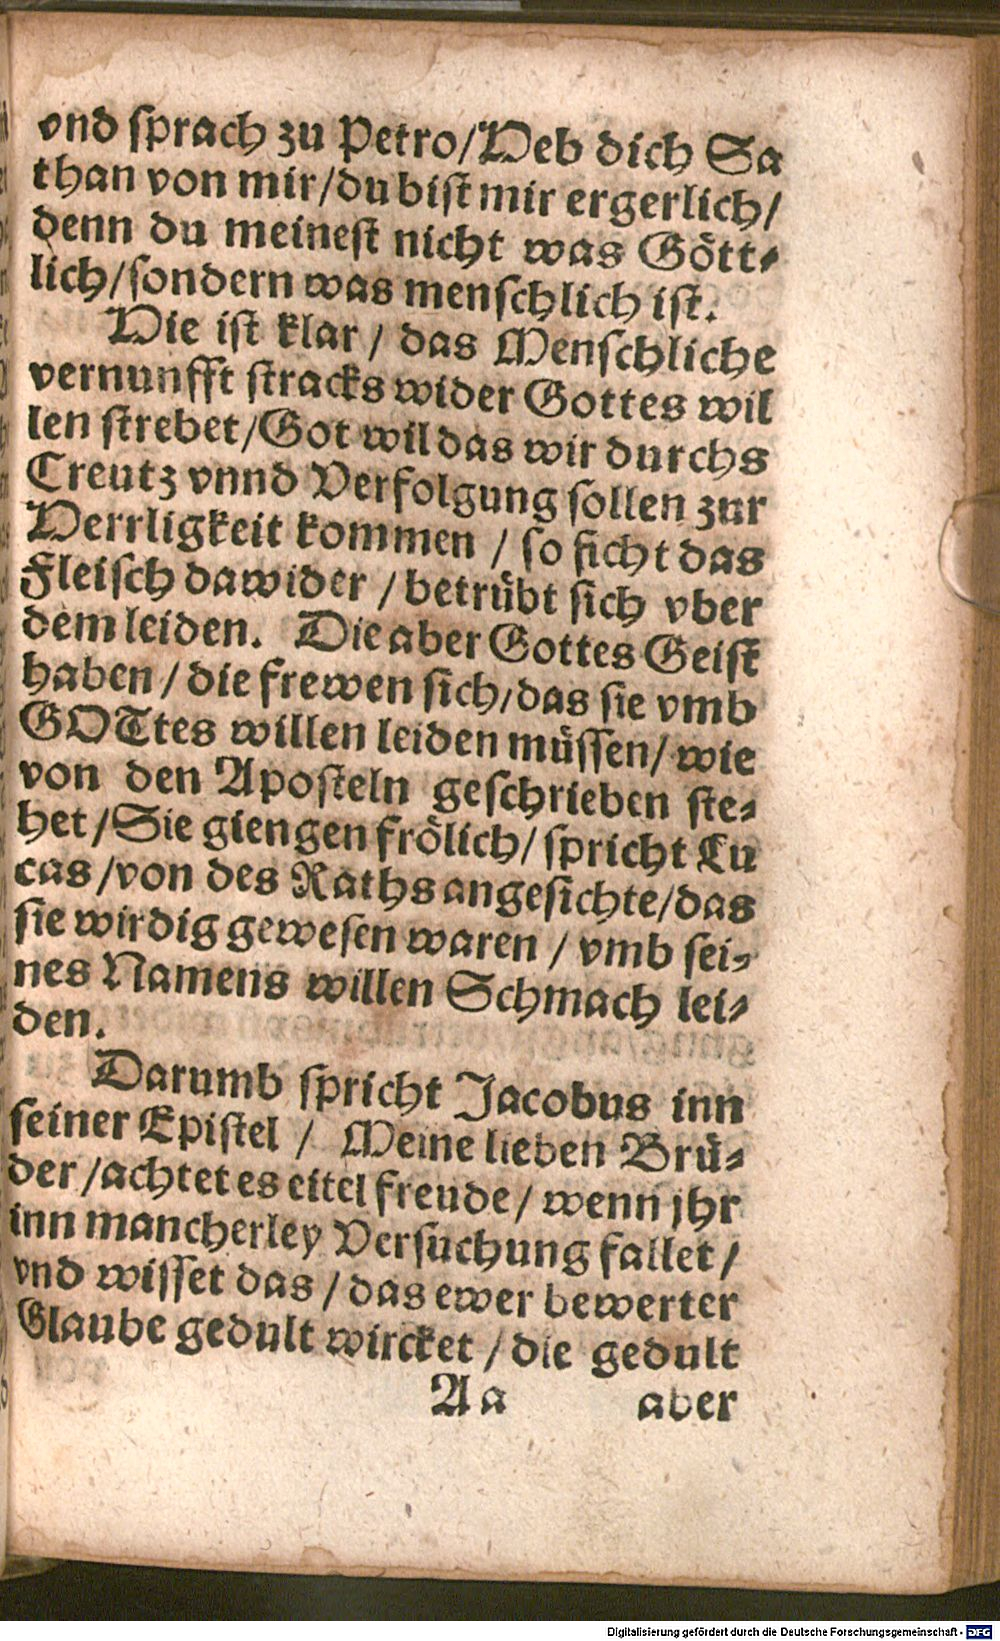 vnd ſprach zu Petro/Heb dich Sa
than von mir/du biſt mir ergerlich/
denn du meineſt nicht was Gött⸗
lich/ſondern was menſchlich iſt.
Hie iſt klar / das Menſchliche
vernunfft ſtracks wider Gottes wil
len ſtrebet/Got wil das wir durchs
Creutz vnnd Verfolgung ſollen zur
Herrligkeit kommen / ſo ficht das
Fleiſch dawider / betrübt ſich vber
dem leiden. Die aber Gottes Geiſt
haben / die frewen ſich/das ſie vmb
GOTtes willen leiden müſſen/ wie
von den Apoſteln geſchrieben ſte⸗
het/Sie giengen frölich/ ſpricht Lu
cas /von des Raths angeſichte/das
ſie wirdig geweſen waren / vmb ſei⸗
nes Namens willen Schmach lei⸗
den.
Darumb ſpricht Jacobus inn
ſeiner Epiſtel / Meine lieben Brü⸗
der /achtet es eitel freude / wenn jhr
inn mancherley Verſuchung fallet /
vnd wiſſet das / das ewer bewerter
Glaube gedult wircket / die gedult
Aa aber
Digitalisierung gefördert durch die Deutsche Forschungsgemeinschaft - DFG